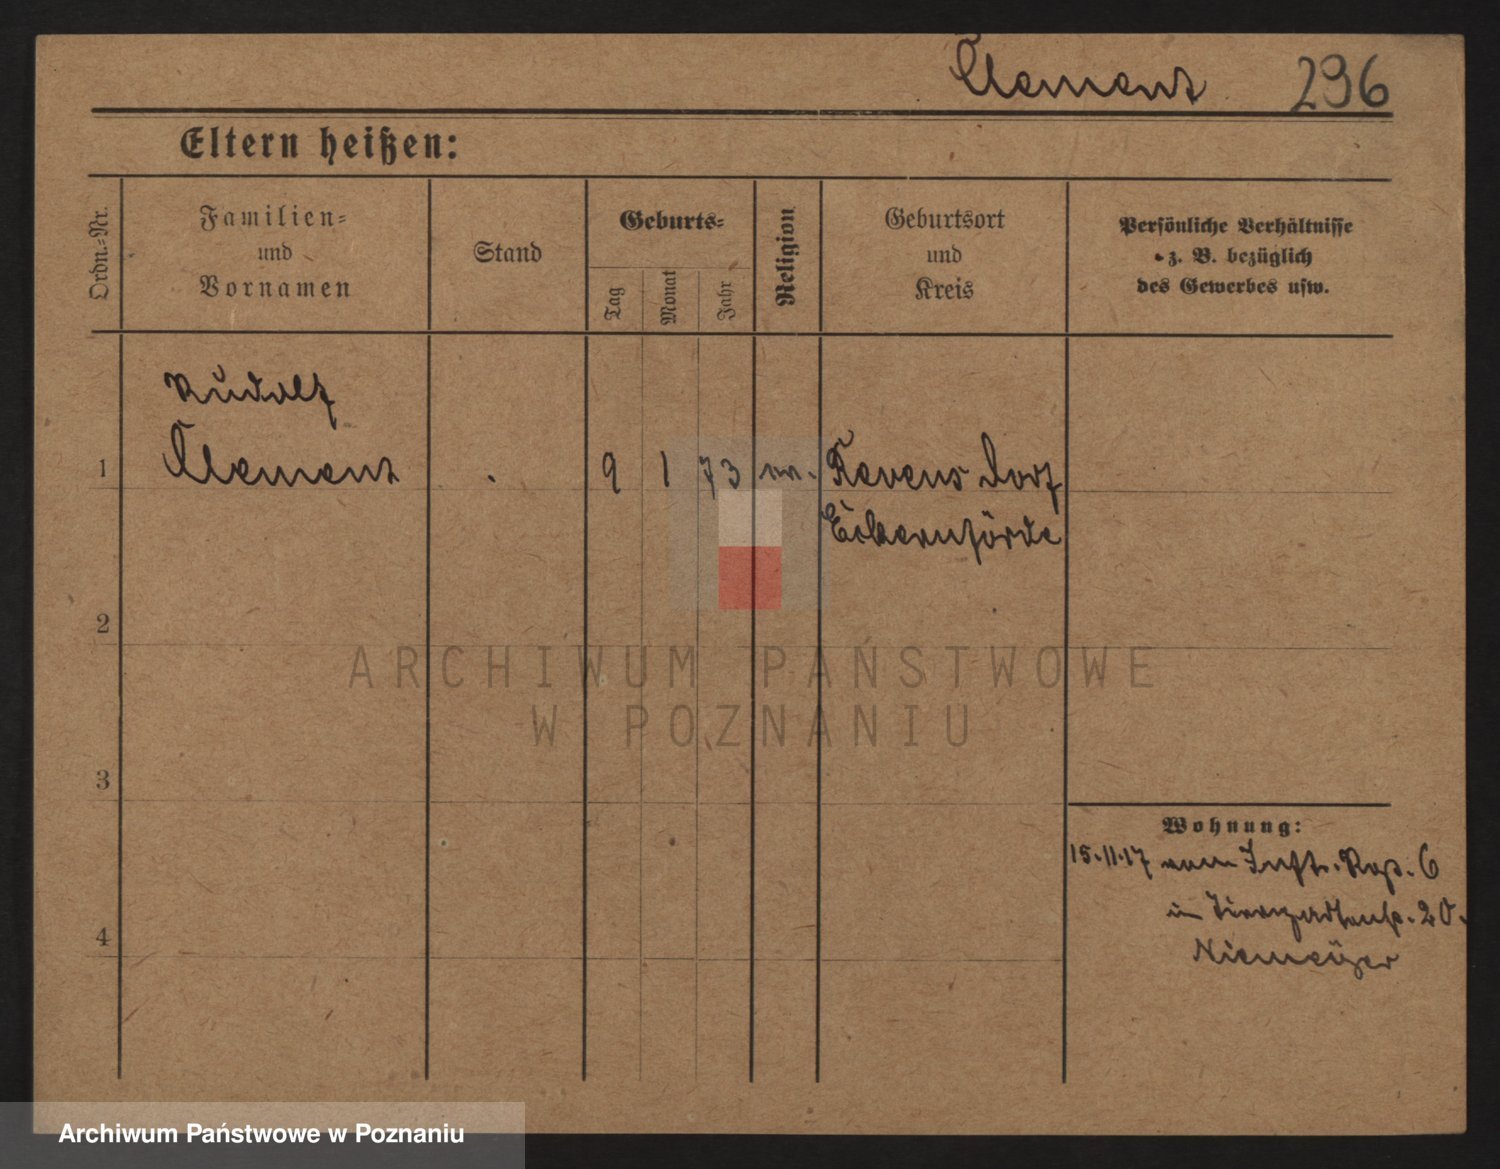 Clement 296
Eltern heißen:
Ordn.-Nr.
Familien-
und
Vornamen
Stand
Geburts-
Tag
Monat
Jahr
Religion
Geburtsort
und
Kreis
Persönliche Verhältnisse
z. B. bezüglich
des Gewerbes usw.
Rudolf
1 Clement . 9 1 73
Eckernförde
2
ARCHIWUM PAŃSTWOWE
W POZNANIU
3
Wohnung:
15.11.17 vom Inftr. 6
in Tiergartenstr. 20.
4
Niemeyer
Archiwum Państwowe w Poznaniu